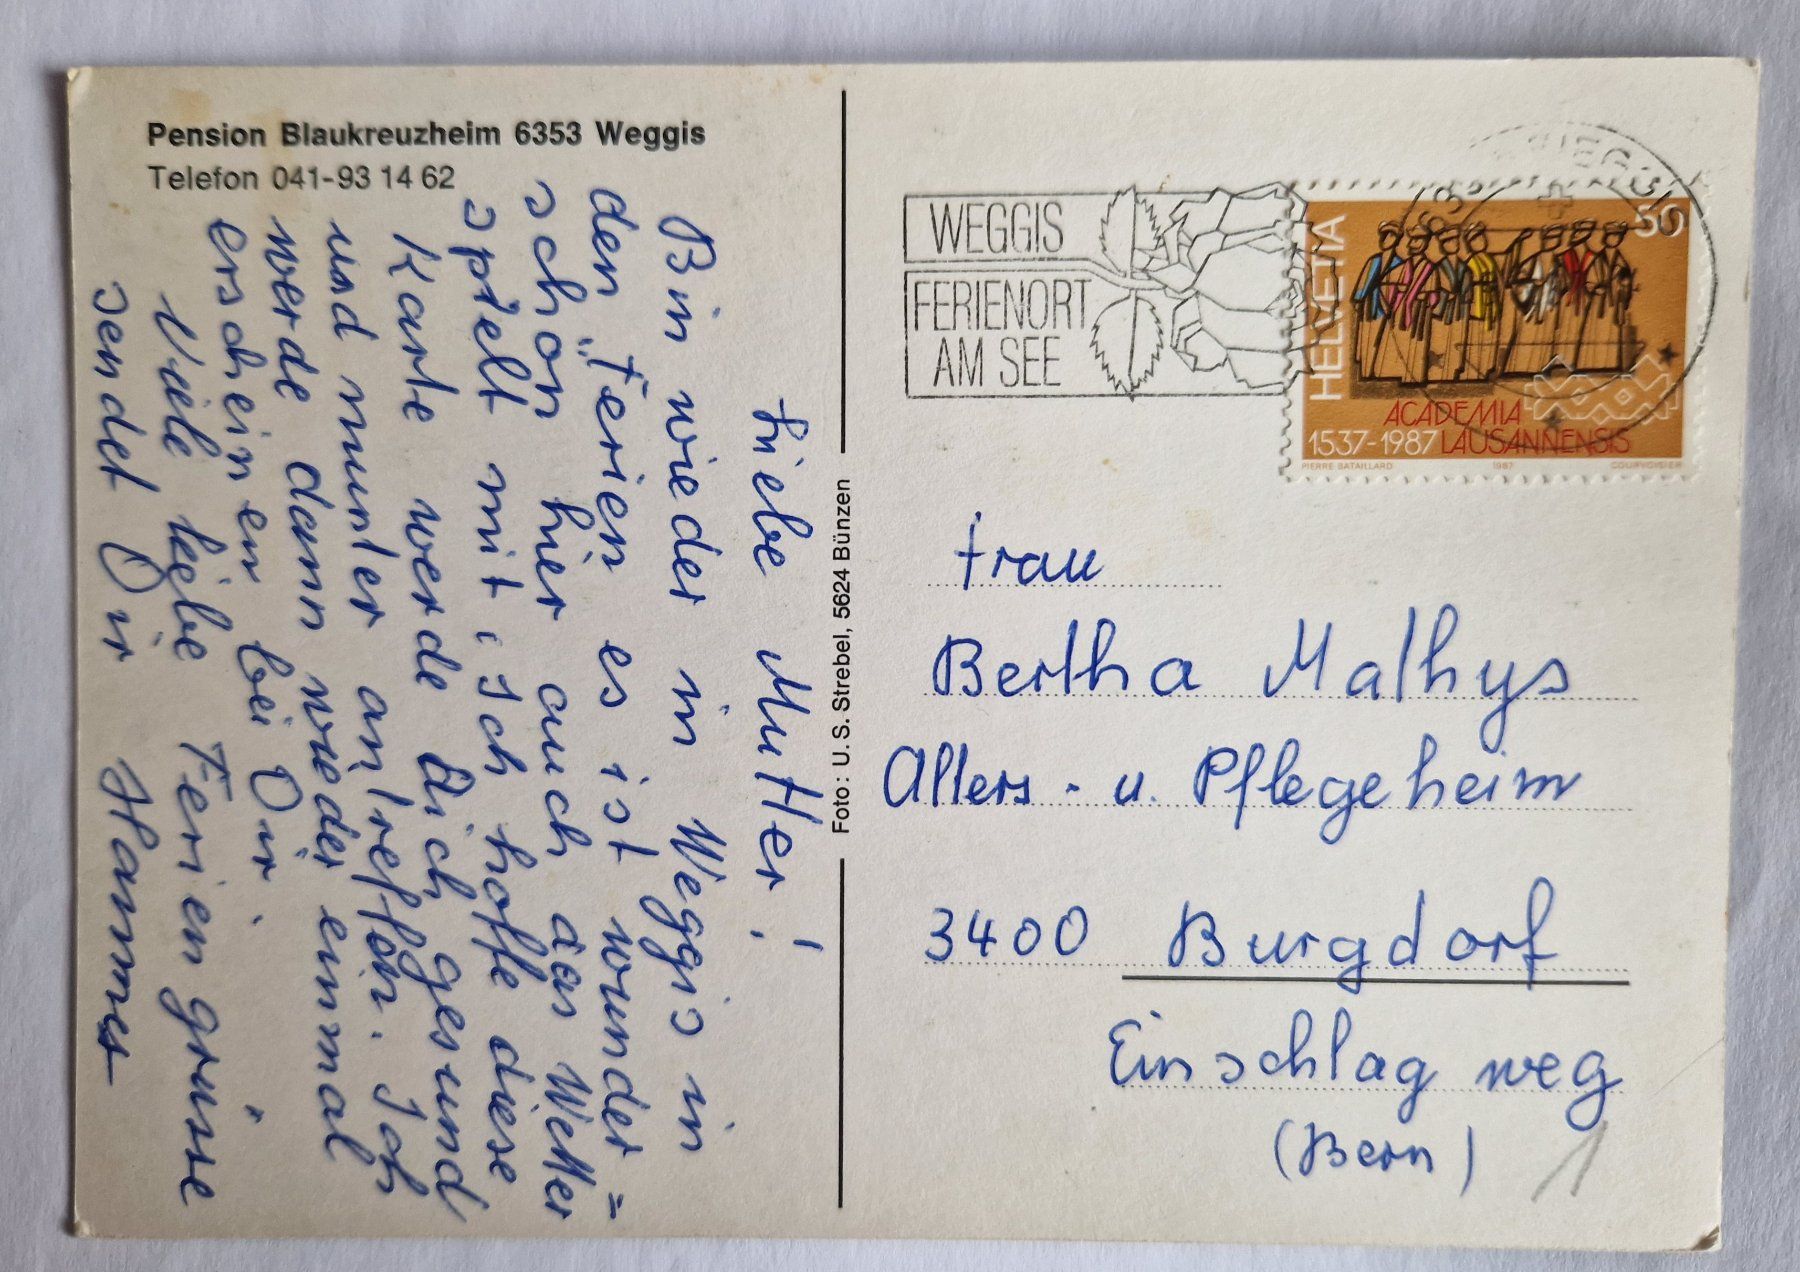 Pension Blaukreuzheim 6353 Weggis
Telefon 041-93 14 62
Liebe Mutter!
Bin wieder in Weggis in
den Ferien es ist wunder=
schön hier auch das Wetter
spielt mit. Ich hoffe diese
Karte werde Dich gesund
und munter antreffen. Ich
werde dann wieder einmal
erscheinen bei Dir.
Viele liebe Feriengrüsse
sendet Dir Hannes
Foto: U. S. Strebel, 5624 Bünzen
WEGGIS
FERIENORT
AM SEE
HELVETIA
50
ACADEMIA
1537-1987 LAUSANNENSIS
PIERRE BATAILLARD 1987 COURVOISIER
Frau
Bertha Mathys
Alters- u. Pflegeheim
3400 Burgdorf
Einschlagweg
(Bern) 1